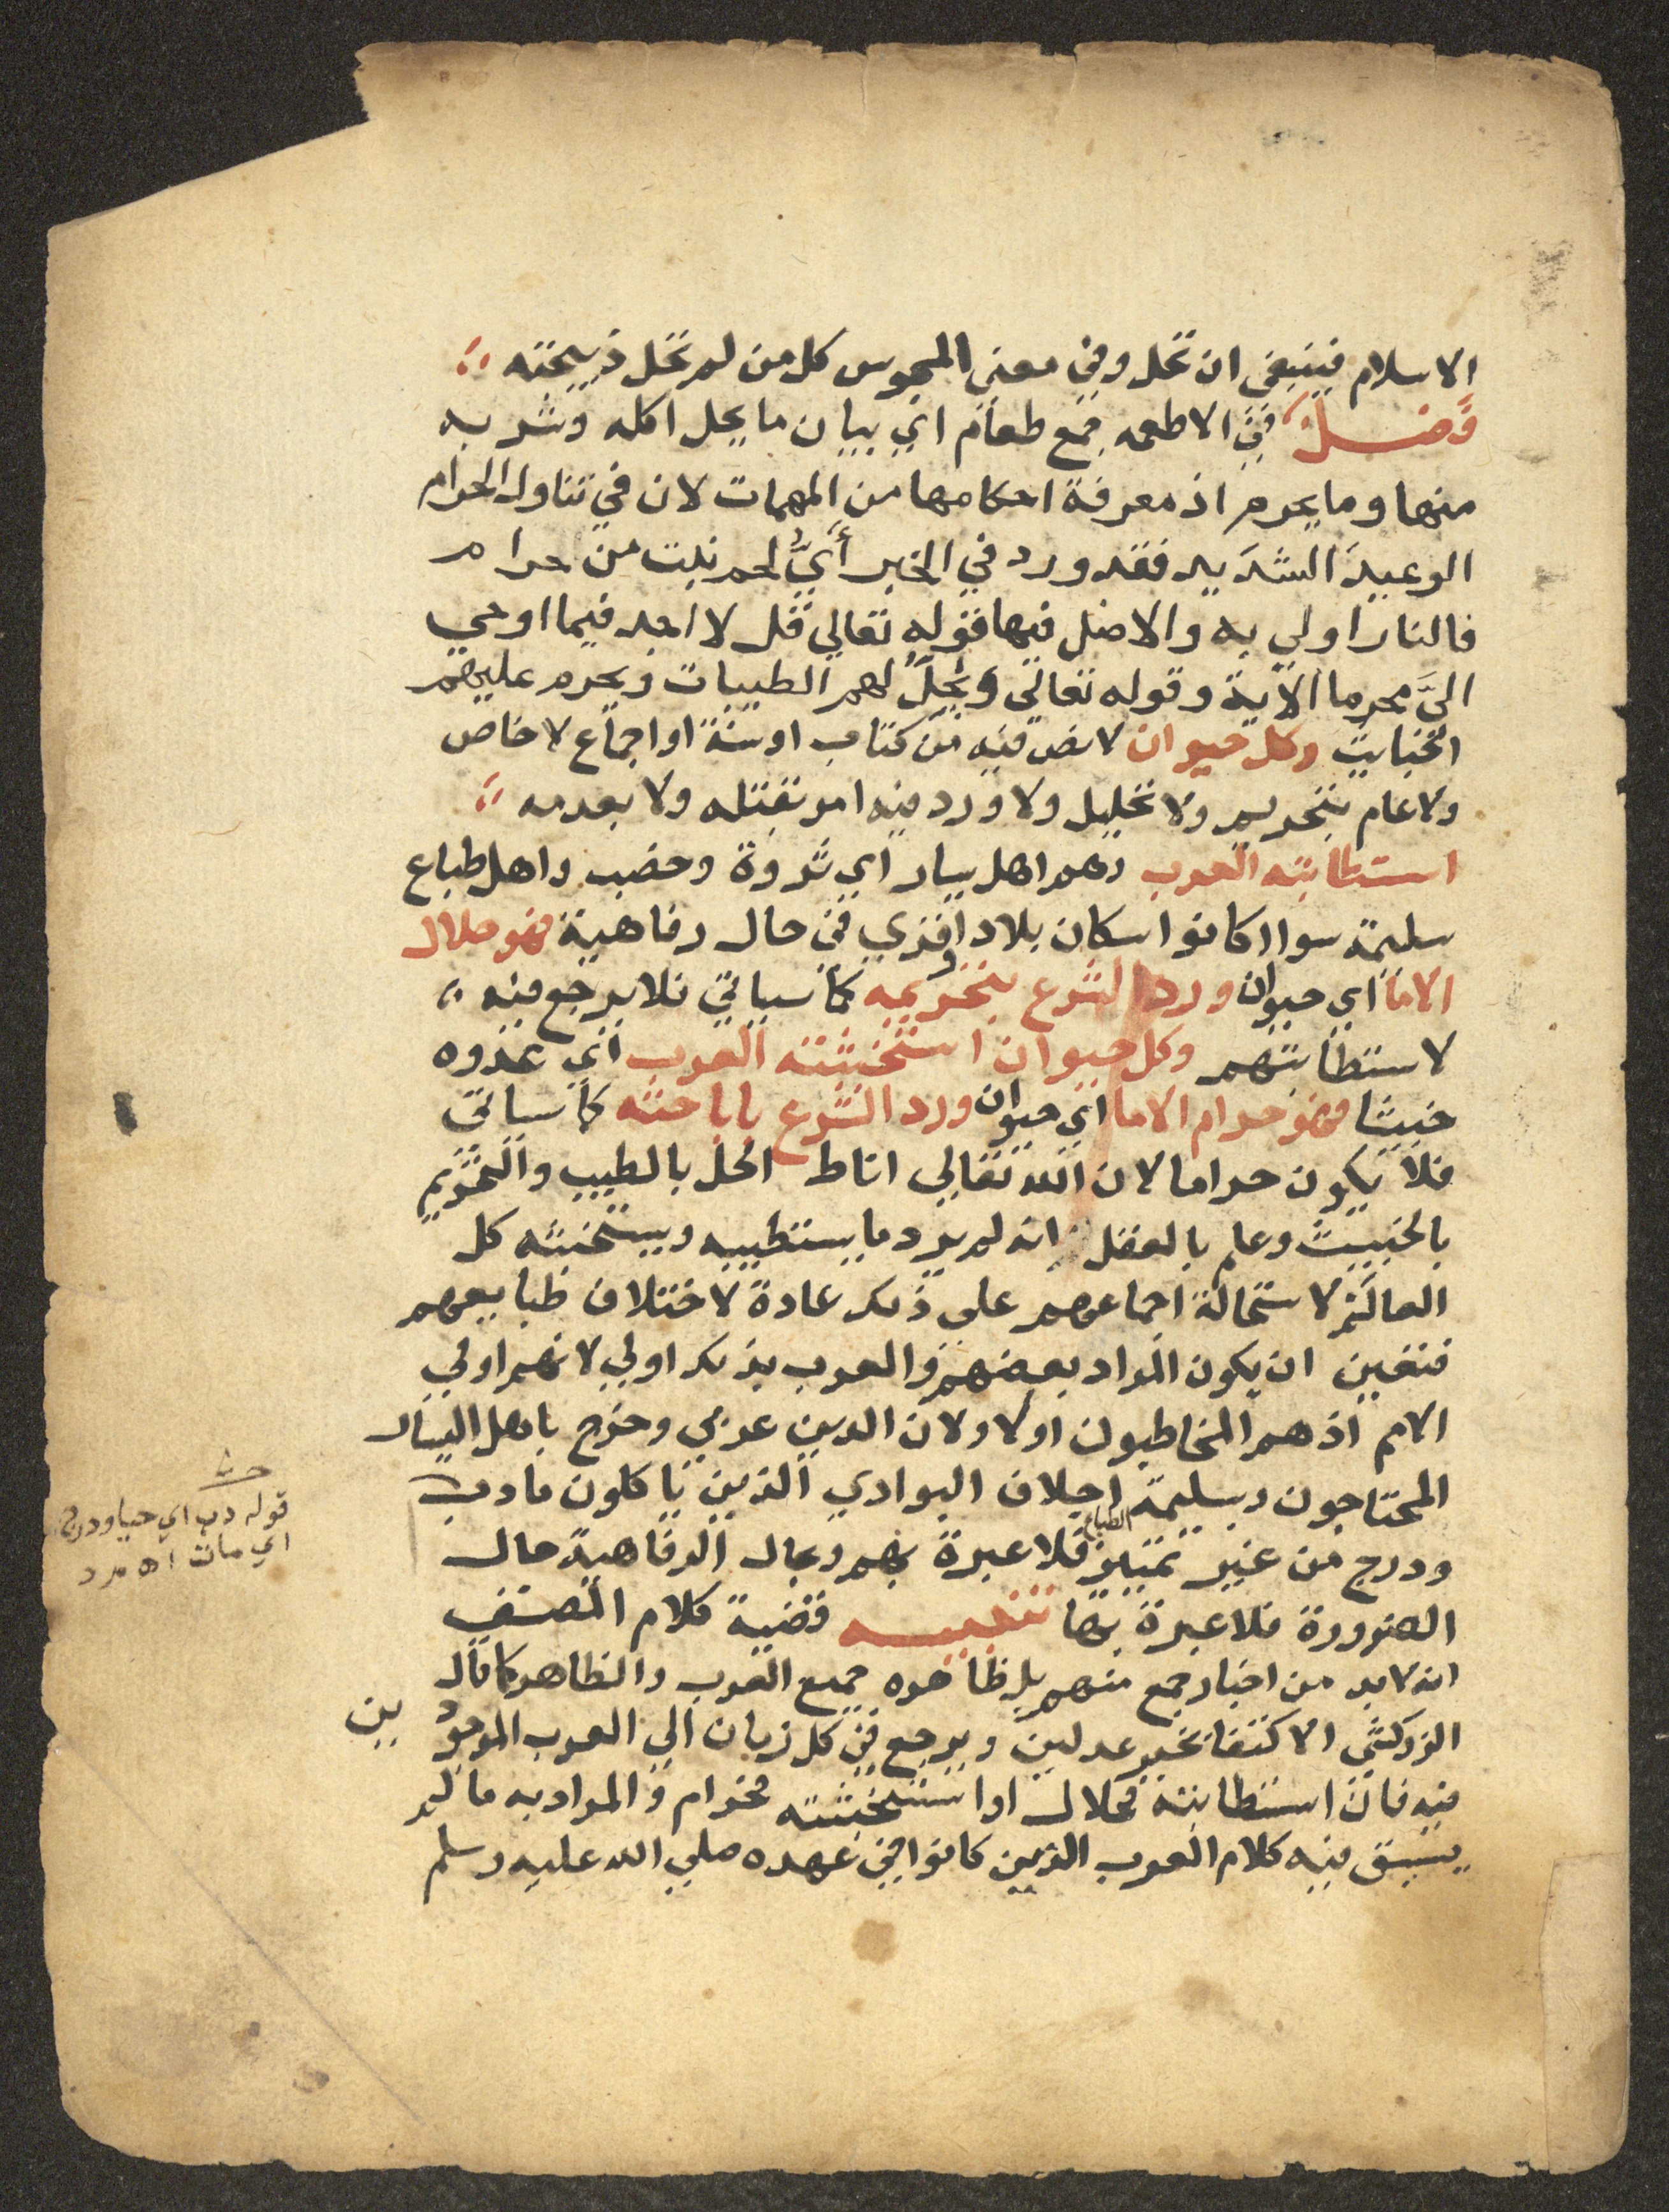 الاسلام فينبغي ان تحل وفي معنى المجوس كل من لم تحل ذبيحته
فصل في الاطعمه جمع طعام اي بيان ما يحل اكله وشربه
منها وما يحرم اذ معرفة احكامها من المهمات لان في تناول الحرام
الوعيدَ الشدَيد فقد ورد في الخبر أَيُّ لحم نبت من حرام
فالنار اولي به والاصل فيها قوله تعالي قل لا اجد فيما اوحي
اليَّ محرما الاية وقوله تعالي ويُحِلُّ لهم الطيبات ويحرم عليهم
الخبايث وكل حيوان لا نص فيه من كتاب او سنة او اجماع لا خاص
ولا عام بتحريم ولا تحليل ولا ورد فيه امر بقتله ولا بعدمه
استطابته العرب وهم اهل يسار اي ثروة وخصب واهل طباع
سليمة سوا اكانوا سكان بلاد او قري في حال رفاهية فهو حلال
الا ما اي حيوان ورد الشرع بتحريمه كما سياتي فلا يرجع فيه
لاستطابتهم وكل حيوان استخبثته العرب اي عدوه
خبيثا فهو حرام الا ما اي حيوان ورد الشرع باباحته كما سياتي
فلا يكون حراما لان الله تعالي اناط الحل بالطيب والتحريم
بالخبيث وعلم بالعقل انه لم يرد ما يستطيبه ويستخبثه كل
العالَم لاستحالة اجماعهم على ذلك عادة لاختلاف طبايعهم
فتعين ان يكون المراد بعضهم والعرب بذلك اولي لانهم اولي
الامم اذ هم المخاطبون اولا ولان الدين عربي وخرج باهل اليسار
المحتاجون وبسليمة الطباع اجلاف البوادي الذين ياكلون ما دب
ودرج من غير تمييز فلا عبرة بهم وبحال الرفاهية حال
الضرورة فلا عبرة بها تنبيه قضية كلام المصنف
انه لا بد من اخبار جمع منهم بل ظاهره جميع العرب والظاهر كما قال
الزركشي الاكتفا بخبر عدلين ويرجع في كل زمان الي العرب الموجودين
فيه فان استطابته فحلال او استخبثته فحرام والمراد به ما لم
يسبق فيه كلام العرب الذين كانوا في عهده صلي الله عليه وسلم
قوله دب اي حيا ودرج
اي مات اه م ر د